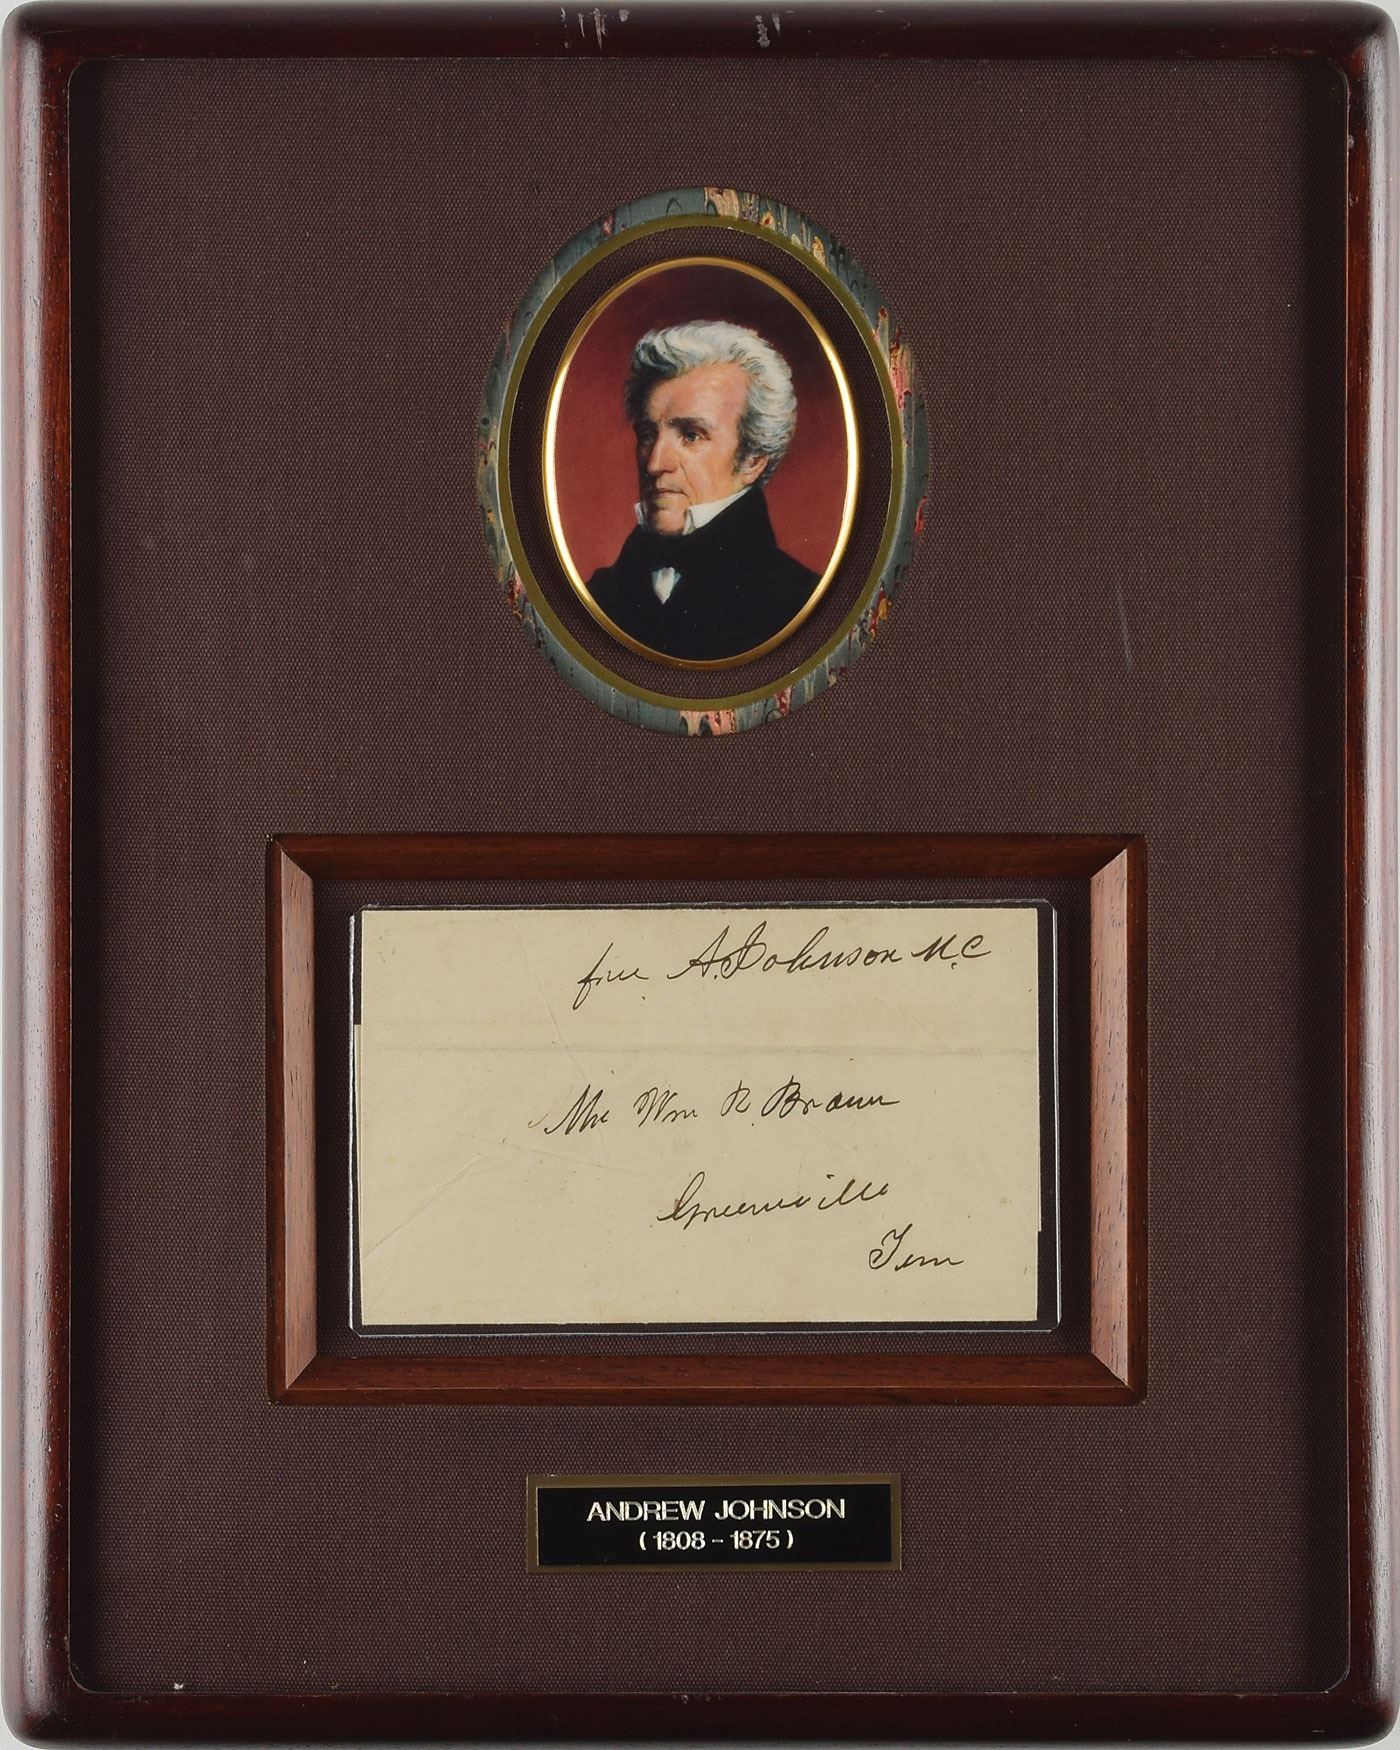 free A. Johnson M.C
Mr Wm R. Brown
Greeneville
Tenn
ANDREW JOHNSON
( 1808 - 1875 )